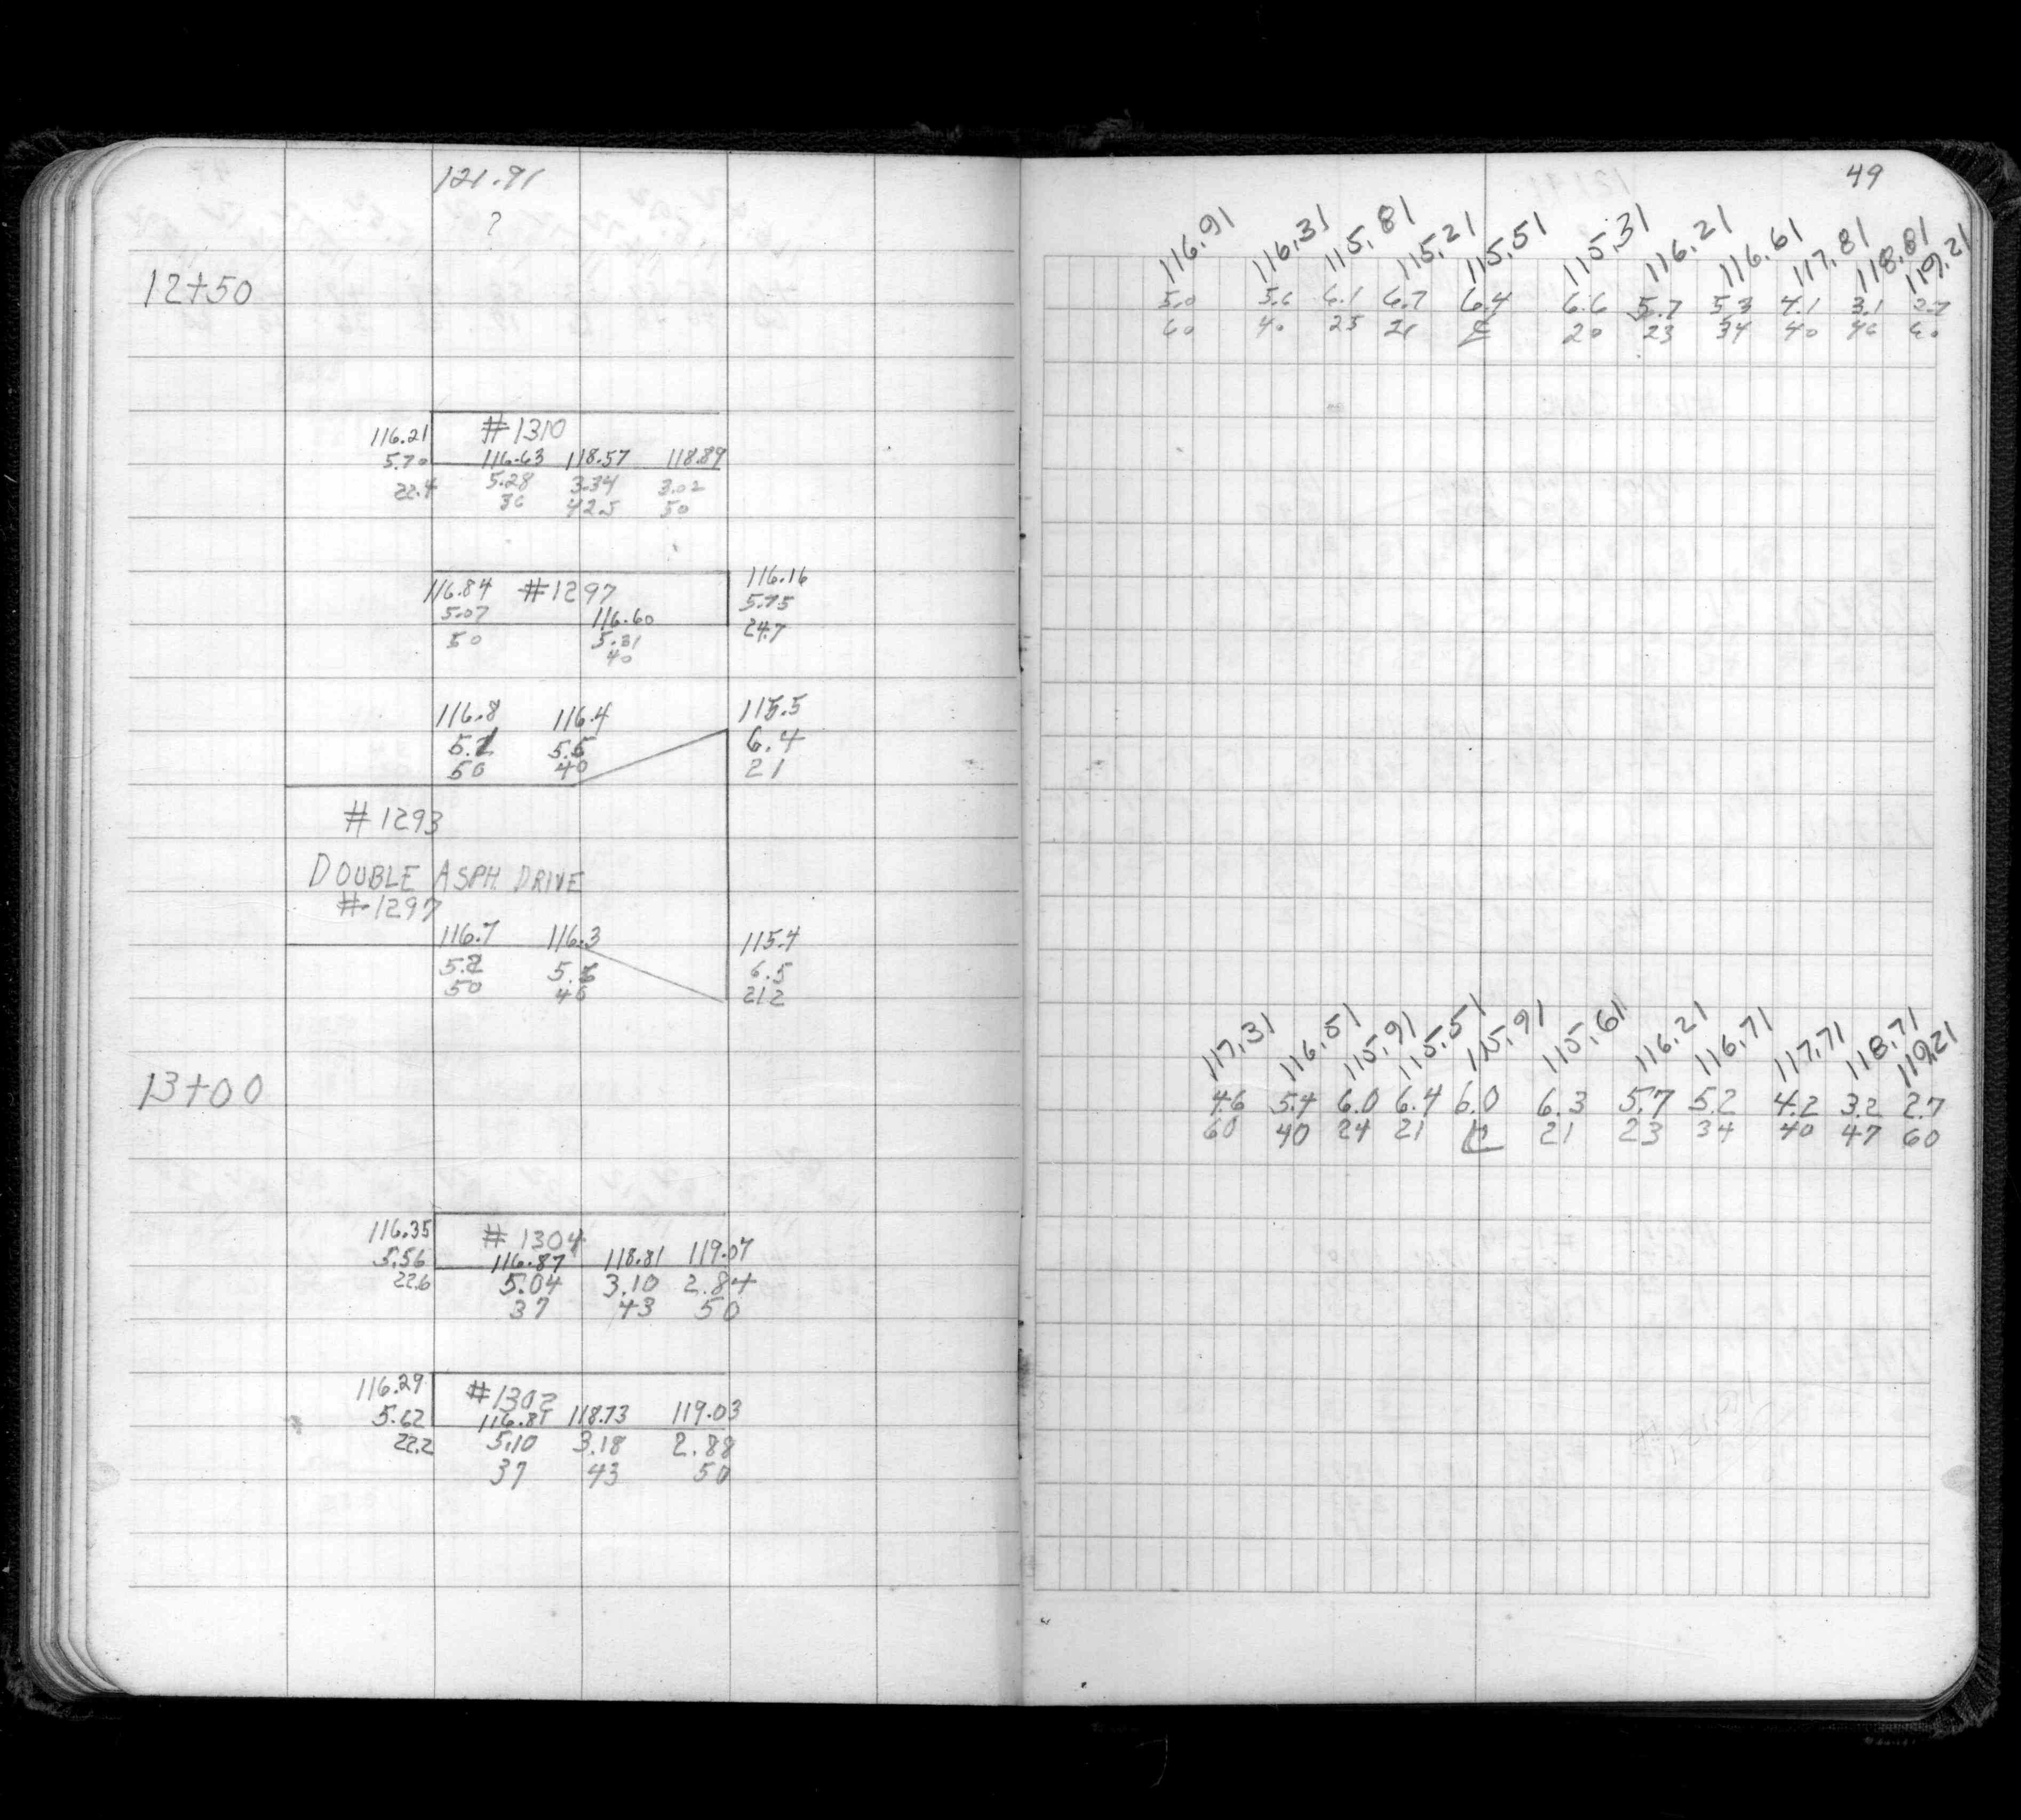 121.91
?
12+50
116.21 #1310
5.70 116.63 118.57 118.89
22.4 5.28 3.34 3.02
36 42.5 50
116.84 #1297 116.16
5.07 116.60 5.75
50 5.31 24.7
40
116.8 116.4 115.5
5.1 5.5 6.4
50 40 21
#1293
DOUBLE ASPH. DRIVE
#1297
116.7 116.3 115.4
5.2 5.6 6.5
50 40 21.2
13+00
116.35 #1304
5.56 116.87 118.81 119.07
22.6 5.04 3.10 2.84
37 43 50
116.29 #1302
5.62 116.81 118.73 119.03
22.2 5.10 3.18 2.88
37 43 50
49
116.91 116.31 115.81 115.21 115.51 115.31 116.21 116.61 117.81 118.81 119.21
5.0 5.6 6.1 6.7 6.4 6.6 5.7 5.3 4.1 3.1 2.7
60 40 25 21 ℄ 20 23 34 40 46 60
117.31 116.51 115.91 115.51 115.91 115.61 116.21 116.71 117.71 118.71 119.21
4.6 5.4 6.0 6.4 6.0 6.3 5.7 5.2 4.2 3.2 2.7
60 40 24 21 ℄ 21 23 34 40 47 60